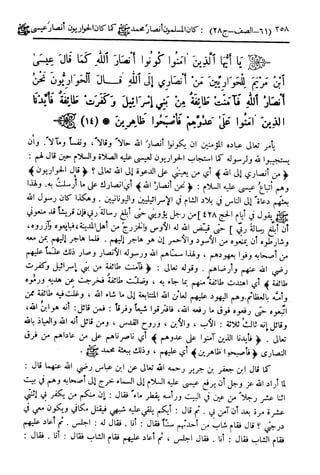 ٣٥٨ (٦١-الصف-ج٢٨) : كان المسلمون أنصار محمد ﷺ كما كان الحواريون أنصار عيسى
يَا أَيُّهَا الَّذِينَ آمَنُوا كُونُوا أَنصَارَ اللَّهِ كَمَا قَالَ عِيسَى
ابْنُ مَرْيَمَ لِلْحَوَارِيِّينَ مَنْ أَنصَارِي إِلَى اللَّهِ قَالَ الْحَوَارِيُّونَ نَحْنُ
أَنصَارُ اللَّهِ فَآمَنَت طَّائِفَةٌ مِّن بَنِي إِسْرَائِيلَ وَكَفَرَت طَّائِفَةٌ فَأَيَّدْنَا
الَّذِينَ آمَنُوا عَلَى عَدُوِّهِمْ فَأَصْبَحُوا ظَاهِرِينَ (١٤)
يأمر تعالى عباده المؤمنين ان يكونوا أنصار الله حالاً وقالاً، ونفساً ومالاً. وأن
يستجيبوا لله ولرسوله كما استجاب الحواريون لعيسى عليه الصلاة والسلام حين قال لهم :
﴿ من أنصاري إلى الله ﴾ أي من يعينني على الدعوة إلى الله تعالى ؟ ﴿ قال الحواريون ﴾
وهم أتباع عيسى عليه السلام : ﴿ نحن أنصار الله ﴾ أي أنصارك على ما أرسلت به. ولهذا
بعثهم دعاة إلى الناس في بلاد الشام في الإسرائيليين واليونانيين. وهكذا كان رسول الله
ﷺ يقول في أيام الحج ٤٢٨] من رجل يؤويني حتى أبلغ رسالة ربي فإن قريشاً قد منعوني
أن أبلغ رسالة ربي ] حتى قيض الله له الأوس والخزرج من أهل المدينة، فبايعوه وآزروه،
وشارطوه أن يمنعوه من الأسود والأحمر إن هو هاجر إليهم. فلما هاجر إليهم بمن معه
من أصحابه وفوا بعهودهم، ولهذا سماهم الله ورسوله الأنصار وصار ذلك علماً عليهم
رضي الله عنهم وأرضاهم. وقوله تعالى : ﴿ فآمنت طائفة من بني إسرائيل وكفرت
طائفة ﴾ أي اهتدت طائفة منهم بما جاء به، وضلت طائفة فخرجت عن هديه ورموه
وأمه بالعظائم وهم اليهود عليهم لعائن الله المتتابعة إلى ما شاء الله، وغلت فيه طائفة ممن
اتبعوه حتى رفعوه فوق ما رفعه الله، فافترقوا شيعاً وفرقاً : فمن قائل: أنه هو ابن الله،
وقائل إنه ثالث ثلاثة : الأب، والأبن، وروح القدس، ومن قائل أنه الله والعياذ بالله
تعالى. ﴿ فأيدنا الذين آمنوا على عدوهم ﴾ أي ناصرناهم على من عاداهم من فرق
النصارى ﴿ فأصبحوا ظاهرين ﴾ أي عليهم، وذلك ببعثة محمد ﷺ.
كما قال ابن جعفر بن جرير رحمه الله تعالى عن ابن عباس رضي الله عنهما قال :
لما أراد الله عز وجل أن يرفع عيسى عليه السلام إلى السماء خرج إلى أصحابه وهم في بيت
اثنا عشر رجلاً من عين في البيت ورأسه يقطر ماءً فقال : إن منكم من يكفر بي إثنتي
عشرة مرة بعد أن آمن بي. ثم قال : أيكم يلقى عليه شبهي فيقتل مكاني ويكون معي في
درجتي ؟ قال فقام شاب من أحدثهم سناً فقال : أنا. فقال له : اجلس. ثم أعاد عليهم
فقام الشاب فقال : أنا. فقال اجلس، ثم أعاد عليهم فقام الشاب فقال : أنا. فقال :